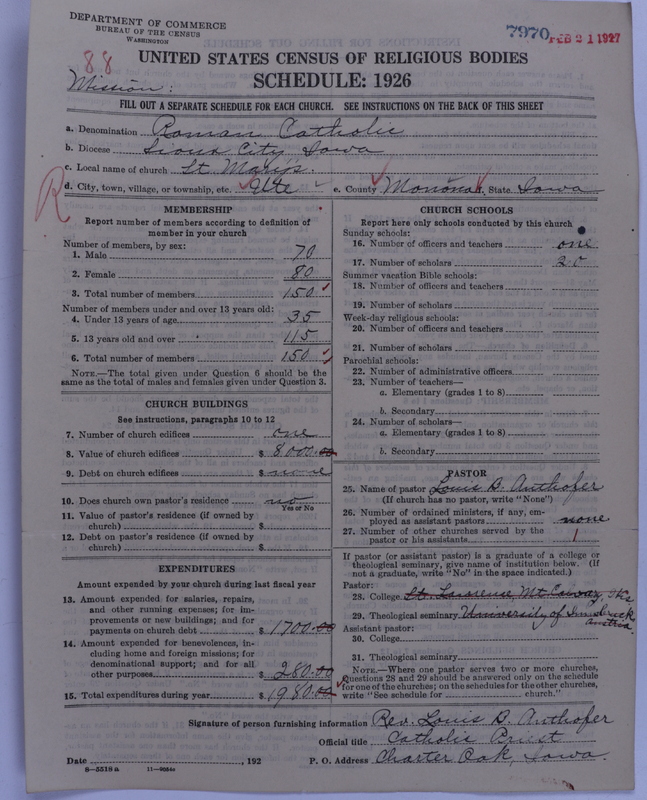 DEPARTMENT OF COMMERCE
BUREAU OF THE CENSUS
WASHINGTON
7970
FEB 21 1927
88
Mission:
UNITED STATES CENSUS OF RELIGIOUS BODIES
SCHEDULE: 1926
FILL OUT A SEPARATE SCHEDULE FOR EACH CHURCH. SEE INSTRUCTIONS ON THE BACK OF THIS SHEET
a. Denomination Roman Catholic
b. Diocese Sioux City, Iowa
c. Local name of church St Mary's.
d. City, town, village, or township, etc. Ute e. County Monona, State Iowa
R
MEMBERSHIP
Report number of members according to definition of
member in your church
Number of members, by sex:
1. Male 70
2. Female 80
3. Total number of members 150
Number of members under and over 13 years old:
4. Under 13 years of age 35
5. 13 years old and over 115
6. Total number of members 150
NOTE.—The total given under Question 6 should be the
same as the total of males and females given under Question 3.
CHURCH BUILDINGS
See instructions, paragraphs 10 to 12
7. Number of church edifices one
8. Value of church edifices $ 8,000.00
9. Debt on church edifices $ none
10. Does church own pastor's residence no
Yes or No
11. Value of pastor's residence (if owned by
church) $
12. Debt on pastor's residence (if owned by
church) $
EXPENDITURES
Amount expended by your church during last fiscal year
13. Amount expended for salaries, repairs,
and other running expenses; for im-
provements or new buildings; and for
payments on church debt $ 1700.00
14. Amount expended for benevolences, in-
cluding home and foreign missions; for
denominational support; and for all
other purposes $ 280.00
15. Total expenditures during year $ 1980.00
CHURCH SCHOOLS
Report here only schools conducted by this church
Sunday schools:
16. Number of officers and teachers one
17. Number of scholars 20
Summer vacation Bible schools:
18. Number of officers and teachers
19. Number of scholars
Week-day religious schools:
20. Number of officers and teachers
21. Number of scholars
Parochial schools:
22. Number of administrative officers
23. Number of teachers—
a. Elementary (grades 1 to 8)
b. Secondary
24. Number of scholars—
a. Elementary (grades 1 to 8)
b. Secondary
PASTOR
25. Name of pastor Louis B. Anthofer
(If church has no pastor, write "None")
26. Number of ordained ministers, if any, em-
ployed as assistant pastors none
27. Number of other churches served by the
pastor or his assistants 1
If pastor (or assistant pastor) is a graduate of a college or
theological seminary, give name of institution below. (If
not a graduate, write "No" in the space indicated.)
Pastor:
28. College St. Lawrence, Mt. Calvary,
29. Theological seminary University of Innsbruck
Austria.
Assistant pastor:
30. College
31. Theological seminary
NOTE.—Where one pastor serves two or more churches,
Questions 28 and 29 should be answered only on the schedule
for one of the churches; on the schedules for the other churches,
write "See schedule for church."
Signature of person furnishing information Rev. Louis B. Anthofer
Official title Catholic Priest
Date , 192 P. O. Address Charter Oak, Iowa.
8-5518 a